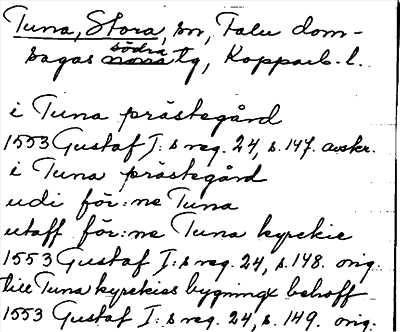 Tuna, Stora, sn, Falu dom-
sagas södra tg, Kopparb. l.
i Tuna prästegård
1553 Gustaf I:s reg. 24, s. 147. avskr.
i Tuna prästegård
udi för:ne Tuna
utaff för:ne Tuna kyrckie
1553 Gustaf I:s reg. 24, s. 148. orig.
till Tuna kyrckies bygning behoff
1553 Gustaf I:s reg. 24, s. 149. orig.